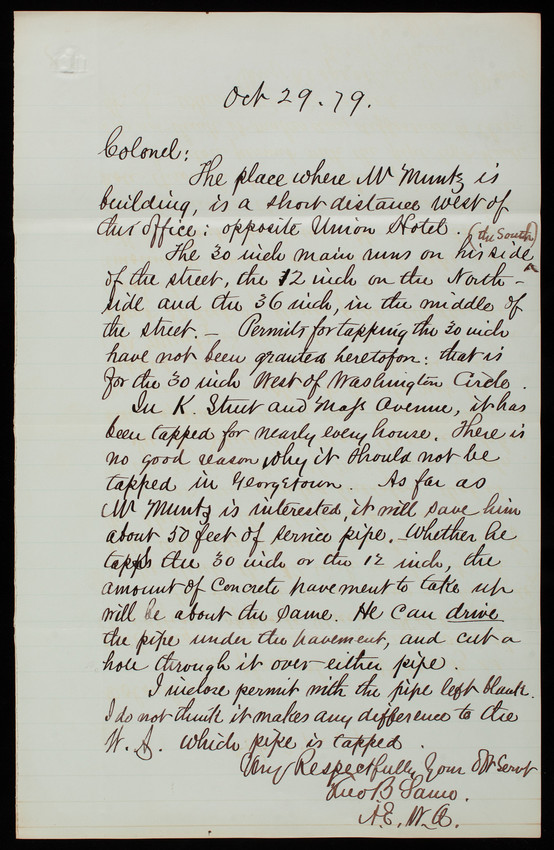 Oct 29. 79.
Colonel:
The place where Mr Muntz is
building, is a short distance west of
this office: opposite Union Hotel.
(the South)
The 30 inch main runs on his side
of the street, the 12 inch on the North-
side and the 36 inch, in the middle of
the street. — Permits for tapping the 30 inch
have not been granted heretofore: that is
for the 30 inch West of Washington Circle.
In K. Street and Mass Avenue, it has
been tapped for nearly every house. There is
no good reason why it should not be
tapped in Georgetown. As far as
Mr Muntz is interested, it will save him
about 50 feet of service pipe. Whether he
tapps the 30 inch or the 12 inch, the
amount of Concrete pavement to take up
will be about the same. He can drive
the pipe under the pavement, and cut a
hole through it over either pipe.
I inclose permit with the pipe left blank.
I do not think it makes any difference to the
W. A. which pipe is tapped.
Very Respectfully Your Obt Servt
Theo B Samo.
A. E. W. A.